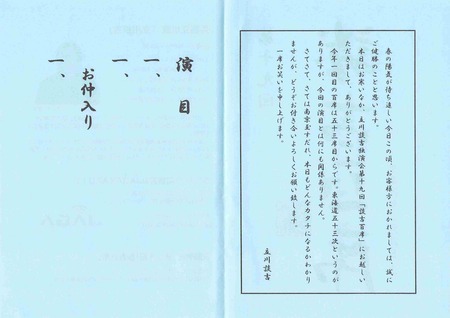 春の陽気が待ち遠しい今日この頃、お客様方におかれましては、誠に
ご健勝のことと思います。
本日はお寒いなか、立川談吉独演会第十九回「談吉百席」にお越しい
ただきまして、ありがとうございます。
今年一回目の百席は五十三席目からです。東海道五十三次というのが
ありますが、今回の演目とは何にも関係ありません。
さてさて、さては南京玉すだれ、本日もどんなカタチになるかわかり
ませんが、どうぞお付き合いよろしくお願い致します。
一席お笑いを申し上げます。
立川談吉
演目
一、
一、
お仲入り
一、